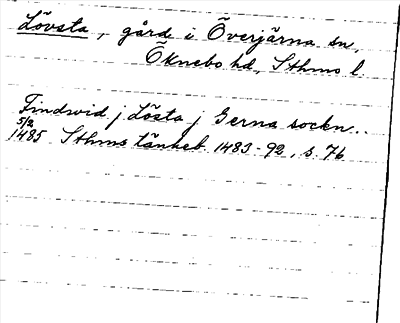 Lövsta, gård i Överjärna sn,
Öknebo hd, Sthms l.
Findwid j Lösta j Gerna sockn..
5/2 1485 Sthms tänkeb. 1483-92, s. 76